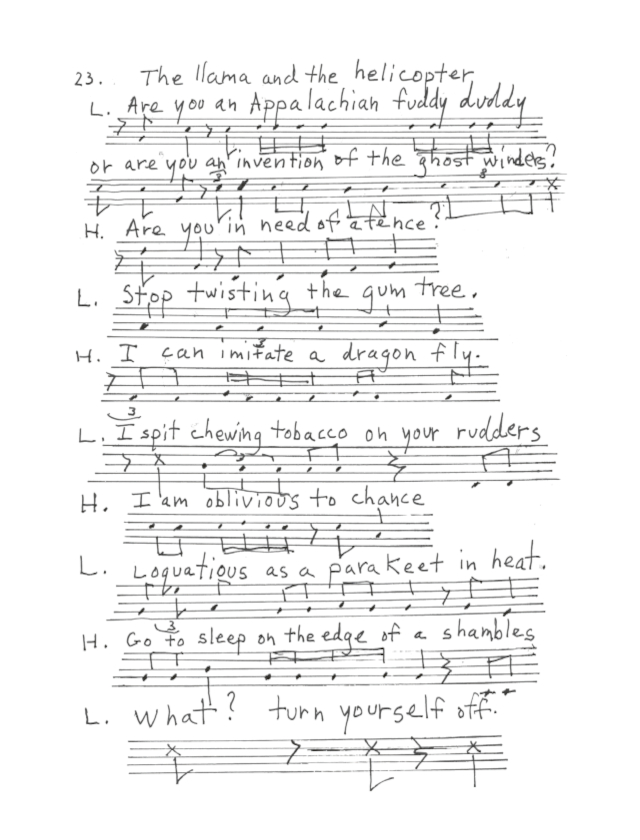 23. The llama and the helicopter
L. Are you an Appalachian fuddy duddy
or are you an invention of the ghost winders?
H. Are you in need of a fence?
L. Stop twisting the gum tree.
H. I can imitate a dragon fly.
L. I spit chewing tobacco on your rudders
H. I am oblivious to chance
L. Loquatious as a parakeet in heat.
H. Go to sleep on the edge of a shambles
L. What? turn yourself off.